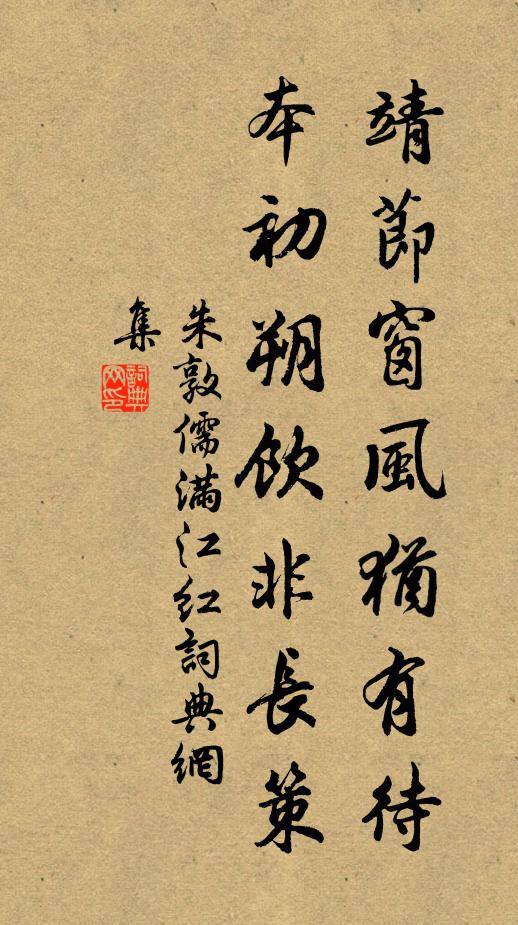 靖節窗風猶有待
本初朔飲非長策
朱敦儒滿江紅詞典網
集
詞典
网印